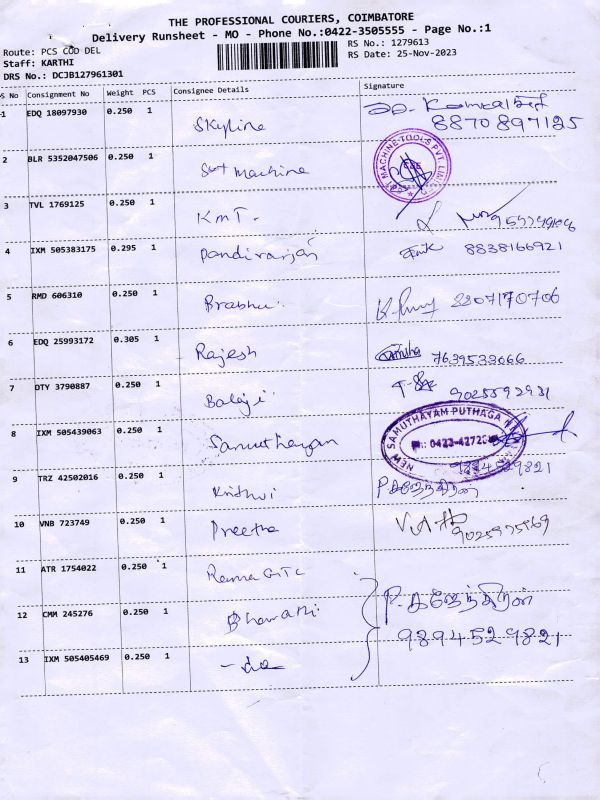 THE PROFESSIONAL COURIERS, COIMBATORE
Delivery Runsheet - MO - Phone No.:0422-3505555 - Page No.:1
Route: PCS COD DEL
RS No.: 1279613
Staff: KARTHI
RS Date: 25-Nov-2023
DRS No.: DCJB127961301
S No Consignment No Weight PCS Consignee Details Signature
1 EDQ 18097930 0.250 1 Skyline
8870897125
2 BLR 5352047506 0.250 1 Machine
MACHINE-TOOLS PVT.
3 TVL 1769125 0.250 1 KMT.
4 IXM 505383175 0.295 1 Pandirarjan 8838166921
5 RMD 606310 0.250 1 Brabhu
6 EDQ 25993172 0.305 1 Rajesh 7639533066
7 DTY 3790887 0.250 1 Balaji
8 IXM 505439063 0.250 1 Samuthayam
NEW SAMUTHAYAM PUTHAGA
PH: 0423-4272
9 TRZ 42502016 0.250 1 Krithvi P. கஜேந்திரன்
9894529821
10 VNB 723749 0.250 1 Preetha
9025975969
11 ATR 1754022 0.250 1
12 CMM 245276 0.250 1 Bharathi P. கஜேந்திரன்
9894529821
13 IXM 505405469 0.250 1 - do